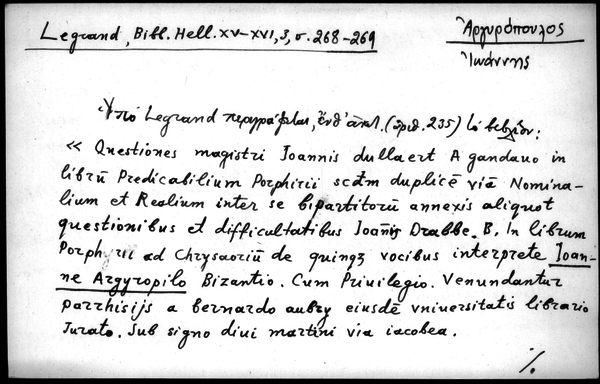 Legrand, Bibl. Hell. XV–XVI, 3, σ. 268–269
Ἀργυρόπουλος
Ἰωάννης
Ὑπὸ Legrand περιγράφεται, ἔνθ' ἀνωτ. (ἀριθ. 235) τὸ βιβλίον:
« Questiones magistri Joannis dullaert A gandavo in
librū Predicabilium Porphirii scđm duplicē viā Nomina-
lium et Realium inter se bipartitorū annexis aliquot
questionibus et difficultatibus Joañis Drabbe. B. In librum
Porphyrii ad Chrysaoriū de quinqȝ vocibus interprete Joan-
ne Argyropilo Bizantio. Cum Priuilegio. Venundantur
parrhisijs a bernardo aubry eiusdē vniuersitatis librario
Jurato. Sub signo diui martini via iacobea.
%